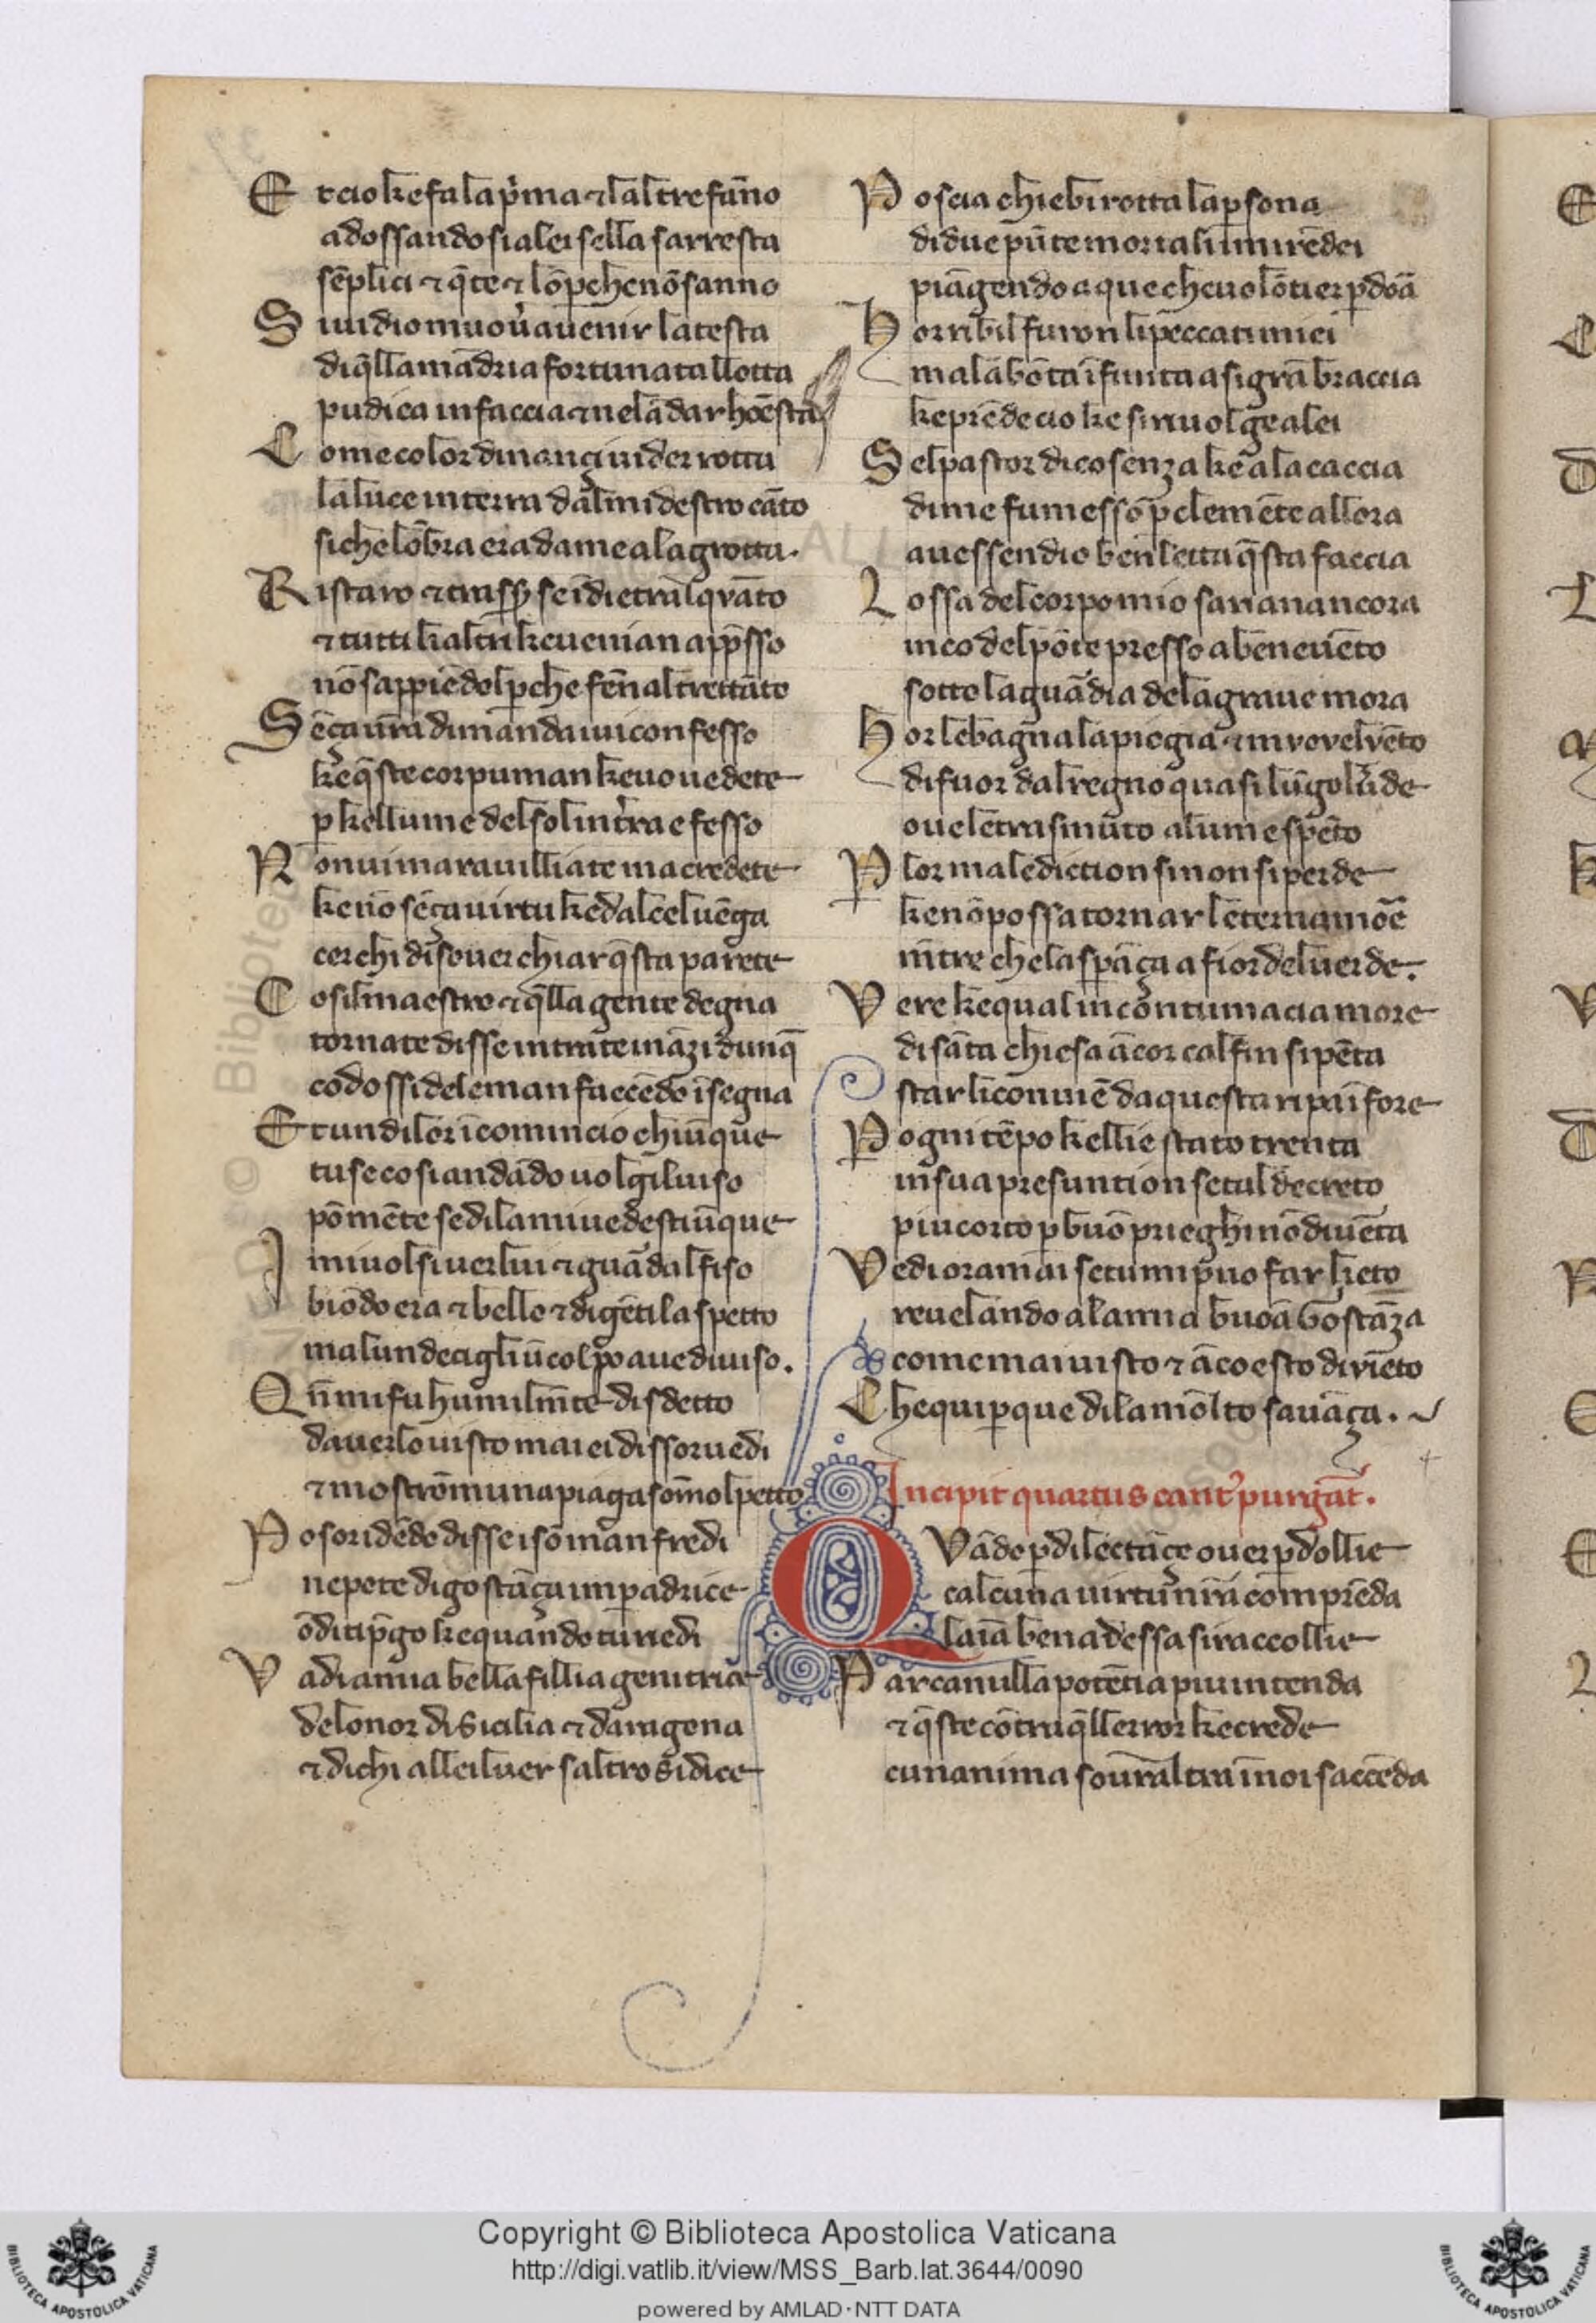 E t cio ke fa la p̾ma ⁊ laltre fan̄o
adossandosi alei sella sarresta
sēplici ⁊ q̄te ⁊ lōpehe nō sanno
S i uidio muoū auenir la testa
di q̄lla mādria fortunata llotta
pudica in faccia ⁊ nelādar hōesta
C ome color dinançi uider rotta
la luce in terra dal mi destro cāto
si che lōbra era da me ala grotta.
R istaro ⁊ trasser se īdietralqvāto
⁊ tutti lialtri ke uenian app̄sso
nō sappiēdol ꝑche fēn altrettāto
S ēça ūra dimandaui confesso
ke q̄ste corpuman ke uo uedete
ꝑ kellume del sol in t̾ra e fesso
N on ui marauilliate ma credete
ke nō sēça uirtu ke dal ce luēga
cerchi di souerchiar q̄sta parete
C osil maestro ⁊ q̄lla gente degna
tornate disse intrateināzi dunq̄
co dossi dele man faccēdo īsegna
E t un di lor īcomincio chiūque
tu se cosi andādo uolgil uiso
pō mēte se di la mi uedesti ūque
I mi uolsi uer lui ⁊ guādal fiso
biōdo era ⁊ bello ⁊ di gētil aspetto
ma lun de cigli ū colpo auea diuiso.
Q n̄ mi fu humilm̄te disdetto
dauerlo uisto mai ei disse or uedi
⁊ mostrōmi una piaga somol petto
P o soridēdo disse i sō manfredi
nepote di gostāça imꝑadrice
ōdi ti p̄go ke quando tu riedi
V adi a mia bella fillia genitrice
delonor di sicilia ⁊ daragona
⁊ dichi allei luer saltro si dice
P oscia chi ebi rotta la ꝑsona
di due pūte mortali i mi rēdei
piāgendo a que che uolōtier ꝑdōa
H orribil furon li peccati miei
ma la bōta īfinita a si grā braccia
ke prēde cio ke si riuolge a lei
S el pastor di cosenza ke ala caccia
di me fu messō ꝑ clemēte allora
auessen dio ben letta q̄sta faccia
L ossa del corpo mio sariano ancora
in co del pōte presso a beneuēto
sotto la guādia dela graue mora
H or le bagna la pioggia ⁊ moue l vēto
di fuor dal regno quasi lūgol ūde
oue le trasmuto a lume spēto
P lor malediction si non si perde
ke nō possa tornar leterno amōe
m̄tre che la sperāça a fior del uerde.
V ere ke qual in contumacia more
di sāta chiesa ācor cal fin si pēta
star li conuiē da questa ripa ī fore
P ogni tēpo kellie stato trenta
in sua presuntion se tal decreto
piu corto ꝑ buō prieghi nō diuēta
V edi oramai se tu mi puo far lieto
reuelando a la mia buōa Gostāza
come mai uisto ⁊ āco esto diuieto
C he qui ꝑ que di la mōlto sauāça.
Incipit quartus cant̾ purgat̄.
QVādo ꝑ dilectāçe ouer ꝑ dollie
calcuna uirtu n̄ra comprēda
laīa ben adessa si raccollie
P ar ca nulla potētia piu intenda
⁊ q̄ste cōtra q̄llerror ke crede
cunanima souraltra in noi saccēda
Copyright © Biblioteca Apostolica Vaticana
http://digi.vatlib.it/view/MSS_Barb.lat.3644/0090
powered by AMLAD·NTT DATA